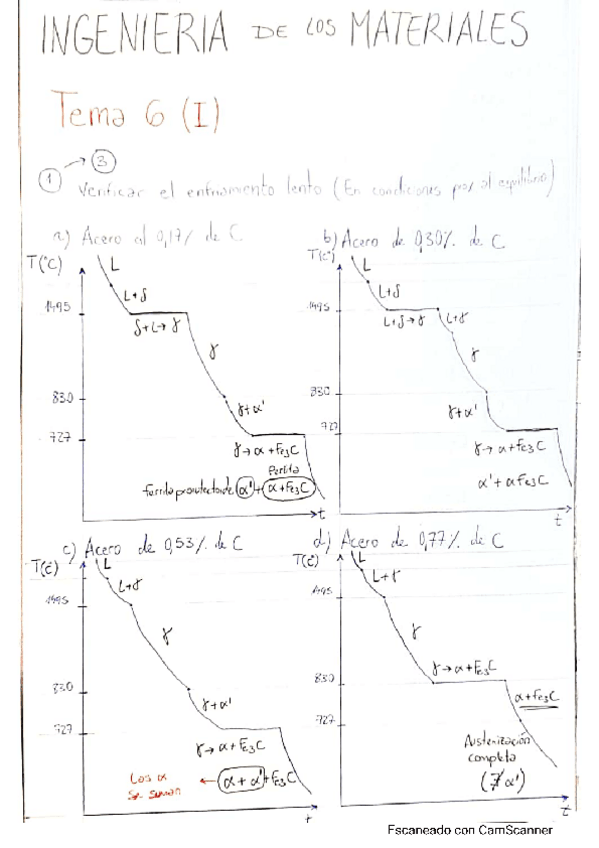 INGENIERIA DE LOS MATERIALES
Tema 6 (I)
① → ③
Verificar el enfriamiento lento (En condiciones prox al equilibrio)
a) Acero al 0,17% de C
T(°C)
L
L+δ
1495
δ+L→γ
γ
830
γ+α'
727
γ→α+Fe3C
Perlita
ferrita proeutectoide α' + α+Fe3C
t
b) Acero de 0,30% de C
T(°C)
L
L+δ
1495
L+δ→γ
L+γ
γ
830
γ+α'
γ→α+Fe3C
α'+αFe3C
t
c) Acero de 0,53% de C
T(°C)
L
L+γ
1495
γ
830
γ+α'
727
γ→α+Fe3C
Los α ← α+α' + Fe3C
se suman
t
d) Acero de 0,77% de C
T(°C)
L
L+γ
1495
γ
γ→α+Fe3C
830
α+Fe3C
727
Austenización
completa
(∄ α')
t
Escaneado con CamScanner